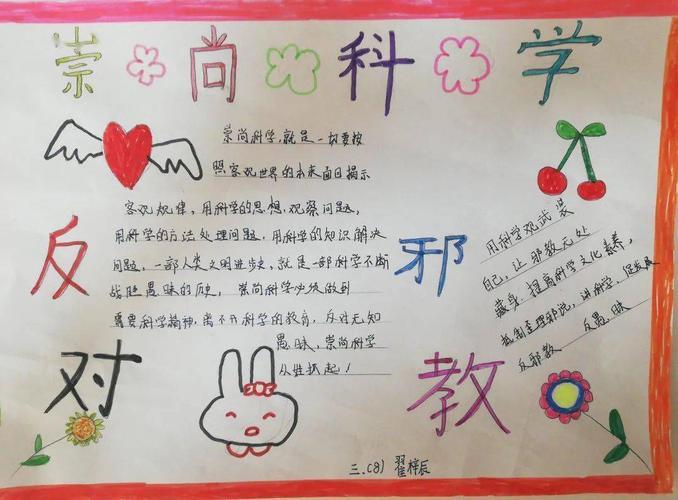 崇尚科学
反对
邪教
崇尚科学,就是一切要按
照客观世界的本来面目揭示
客观规律,用科学的思想,观察问题,
用科学的方法处理问题,用科学的知识解决
问题,一部人类文明进步史,就是一部科学不断
战胜愚昧的历史,崇尚科学必须做到
需要科学精神,离不开科学的教育,反对无知
愚昧,崇尚科学
从娃抓起!
用科学观武装
自己,让邪教无处
藏身,提高科学文化素养,
抵制歪理邪说,讲科学,促发展
反邪教 反愚昧
三.(8) 翟梓辰